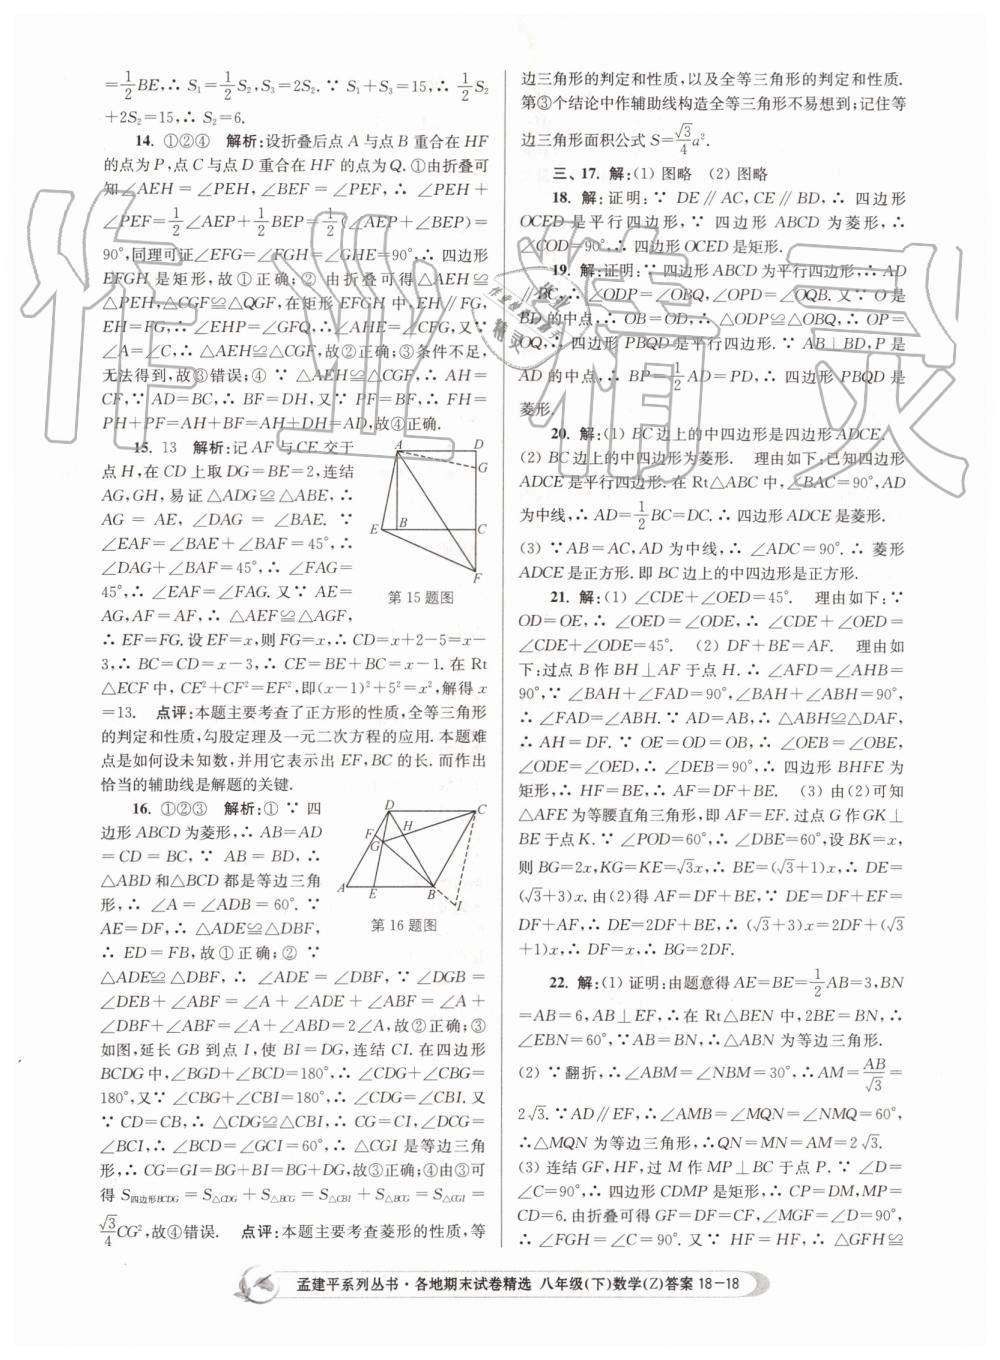 =1/2BE,∴ S₁=1/2S₂,S₃=2S₂.∵ S₁+S₃=15,∴ 1/2S₂
+2S₂=15,∴ S₂=6.
14. ①②④ 解析:设折叠后点 A 与点 B 重合在 HF
的点为 P,点 C 与点 D 重合在 HF 的点为Q. ①由折叠可
知∠AEH=∠PEH,∠BEF=∠PEF,∴ ∠PEH+
∠PEF=1/2∠AEP+1/2BEP=1/2(∠AEP+∠BEP)=
90°,同理可证∠EFG=∠FGH=∠GHE=90°,∴ 四边形
EFGH 是矩形,故①正确;② 由折叠可得△AEH≌
△PEH,△CGF≌△QGF,在矩形 EFGH 中,EH∥FG,
EH=FG,∴ ∠EHP=∠GFQ,∴∠AHE=∠CFG,又∵
∠A=∠C,∴ △AEH≌△CGF,故②正确;③条件不足,
无法得到,故③错误;④ ∵ △AEH≌△CGF,∴ AH=
CF,∵ AD=BC,∴ BF=DH,又∵ PF=BF,∴ FH=
PH+PF=AH+BF=AH+DH=AD,故④正确.
15. 13 解析:记 AF 与 CE 交于
点 H,在 CD 上取 DG=BE=2,连结
AG,GH,易证△ADG≌△ABE,∴
AG = AE, ∠DAG = ∠BAE. ∵
∠EAF=∠BAE+∠BAF=45°,∴
∠DAG+∠BAF=45°,∴ ∠FAG=
45°,∴ ∠EAF=∠FAG.又∵ AE=
AG,AF=AF,∴ △AEF≌△AGF,
∴ EF=FG.设 EF=x,则 FG=x,∴ CD=x+2-5=x-
3,∴ BC=CD=x-3,∴ CE=BE+BC=x-1.在 Rt
△ECF 中,CE²+CF²=EF²,即(x-1)²+5²=x²,解得 x
=13. 点评:本题主要考查了正方形的性质,全等三角形
的判定和性质,勾股定理及一元二次方程的应用.本题难
点是如何设未知数,并用它表示出 EF,BC 的长.而作出
恰当的辅助线是解题的关键.
A D G E B C F
第 15 题图
16. ①②③ 解析:① ∵ 四
边形 ABCD 为菱形,∴ AB=AD
=CD = BC,∵ AB = BD,∴
△ABD 和△BCD 都是等边三角
形,∴ ∠A = ∠ADB = 60°. ∵
AE=DF,∴ △ADE≌△DBF,
∴ ED=FB,故①正确;② ∵
△ADE≌△DBF,∴ ∠ADE = ∠DBF,∵ ∠DGB =
∠DEB+∠ABF=∠A+∠ADE+∠ABF=∠A+
∠DBF+∠ABF=∠A+∠ABD=2∠A,故②正确;③
如图,延长 GB 到点 I,使 BI=DG,连结 CI.在四边形
BCDG 中,∠BGD+∠BCD=180°,∴ ∠CDG+∠CBG=
180°,又∵ ∠CBG+∠CBI=180°,∴ ∠CDG=∠CBI.又
∵ CD=CB,∴ △CDG≌△CBI,∴ CG=CI,∠DCG=
∠BCI,∴ ∠BCD=∠GCI=60°,∴ △CGI 是等边三角
形,∴ CG=GI=BG+BI=BG+DG,故③正确;④由③可
得 S四边形BCDG = S△CDG + S△BCG = S△CBI + S△BCG = S△CGI =
√3/4CG²,故④错误. 点评:本题主要考查菱形的性质,等
D C F H G A E B I
第 16 题图
边三角形的判定和性质,以及全等三角形的判定和性质.
第③个结论中作辅助线构造全等三角形不易想到;记住等
边三角形面积公式 S=√3/4a².
三、17. 解:(1) 图略 (2) 图略
18. 解:证明:∵ DE∥AC,CE∥BD,∴ 四边形
OCED 是平行四边形,∵ 四边形 ABCD 为菱形,∴
∠COD=90°,∴ 四边形 OCED 是矩形.
19. 解:证明:∵ 四边形 ABCD 为平行四边形,∴ AD
∥BC,∴ ∠ODP=∠OBQ,∠OPD=∠OQB.又∵ O 是
BD 的中点,∴ OB=OD,∴ △ODP≌△OBQ,∴ OP=
OQ,∴ 四边形 PBQD 是平行四边形.∵ AB⊥BD,P 是
AD 的中点,∴ BP=1/2AD=PD,∴ 四边形 PBQD 是
菱形.
20. 解:(1) BC 边上的中四边形是四边形 ADCE.
(2) BC 边上的中四边形为菱形. 理由如下:已知四边形
ADCE 是平行四边形.在 Rt△ABC 中,∠BAC=90°,AD
为中线,∴ AD=1/2BC=DC.∴ 四边形 ADCE 是菱形.
(3) ∵AB=AC,AD 为中线,∴ ∠ADC=90°.∴ 菱形
ADCE 是正方形.即 BC 边上的中四边形是正方形.
21. 解:(1) ∠CDE+∠OED=45°. 理由如下:∵
OD=OE,∴ ∠OED=∠ODE,∴ ∠CDE+∠OED=
∠CDE+∠ODE=45°. (2) DF+BE=AF. 理由如
下:过点 B 作 BH⊥AF 于点 H.∴ ∠AFD=∠AHB=
90°,∵ ∠BAH+∠FAD=90°,∠BAH+∠ABH=90°,
∴ ∠FAD=∠ABH.∵ AD=AB,∴ △ABH≌△DAF,
∴ AH=DF.∵ OE=OD=OB,∴ ∠OEB=∠OBE,
∠ODE=∠OED,∴ ∠DEB=90°,∴ 四边形 BHFE 为
矩形,∴ HF=BE,∴ AF=DF+BE. (3) 由(2)可知
△AFE 为等腰直角三角形,即 AF=EF.过点 G 作 GK⊥
BE 于点 K.∵ ∠POD=60°,∴ ∠DBE=60°,设 BK=x,
则 BG=2x,KG=KE=√3x,∴ BE=(√3+1)x,∴ DE=
(√3+3)x.由(2)得 AF=DF+BE,∵ DE=DF+EF=
DF+AF,∴ DE=2DF+BE,∴ (√3+3)x=2DF+(√3
+1)x,∴ DF=x,∴ BG=2DF.
22. 解:(1) 证明:由题意得 AE=BE=1/2AB=3,BN
=AB=6,AB⊥EF,∴ 在 Rt△BEN 中,2BE=BN,∴
∠EBN=60°,∵AB=BN,∴△ABN 为等边三角形.
(2) ∵翻折,∴ ∠ABM=∠NBM=30°,∴ AM=AB/√3=
2√3.∵AD∥EF,∴ ∠AMB=∠MQN=∠NMQ=60°,
∴△MQN 为等边三角形,∴QN=MN=AM=2√3.
(3) 连结 GF,HF,过 M 作 MP⊥BC 于点 P.∵ ∠D=
∠C=90°,∴ 四边形 CDMP 是矩形,∴ CP=DM,MP=
CD=6.由折叠可得 GF=DF=CF,∠MGF=∠D=90°,
∴ ∠FGH = ∠C = 90°. 又∵ FH = FH,∴ △GFH ≌
孟建平系列丛书·各地期末试卷精选 八年级(下)数学(Z)答案 18-18
作业精灵